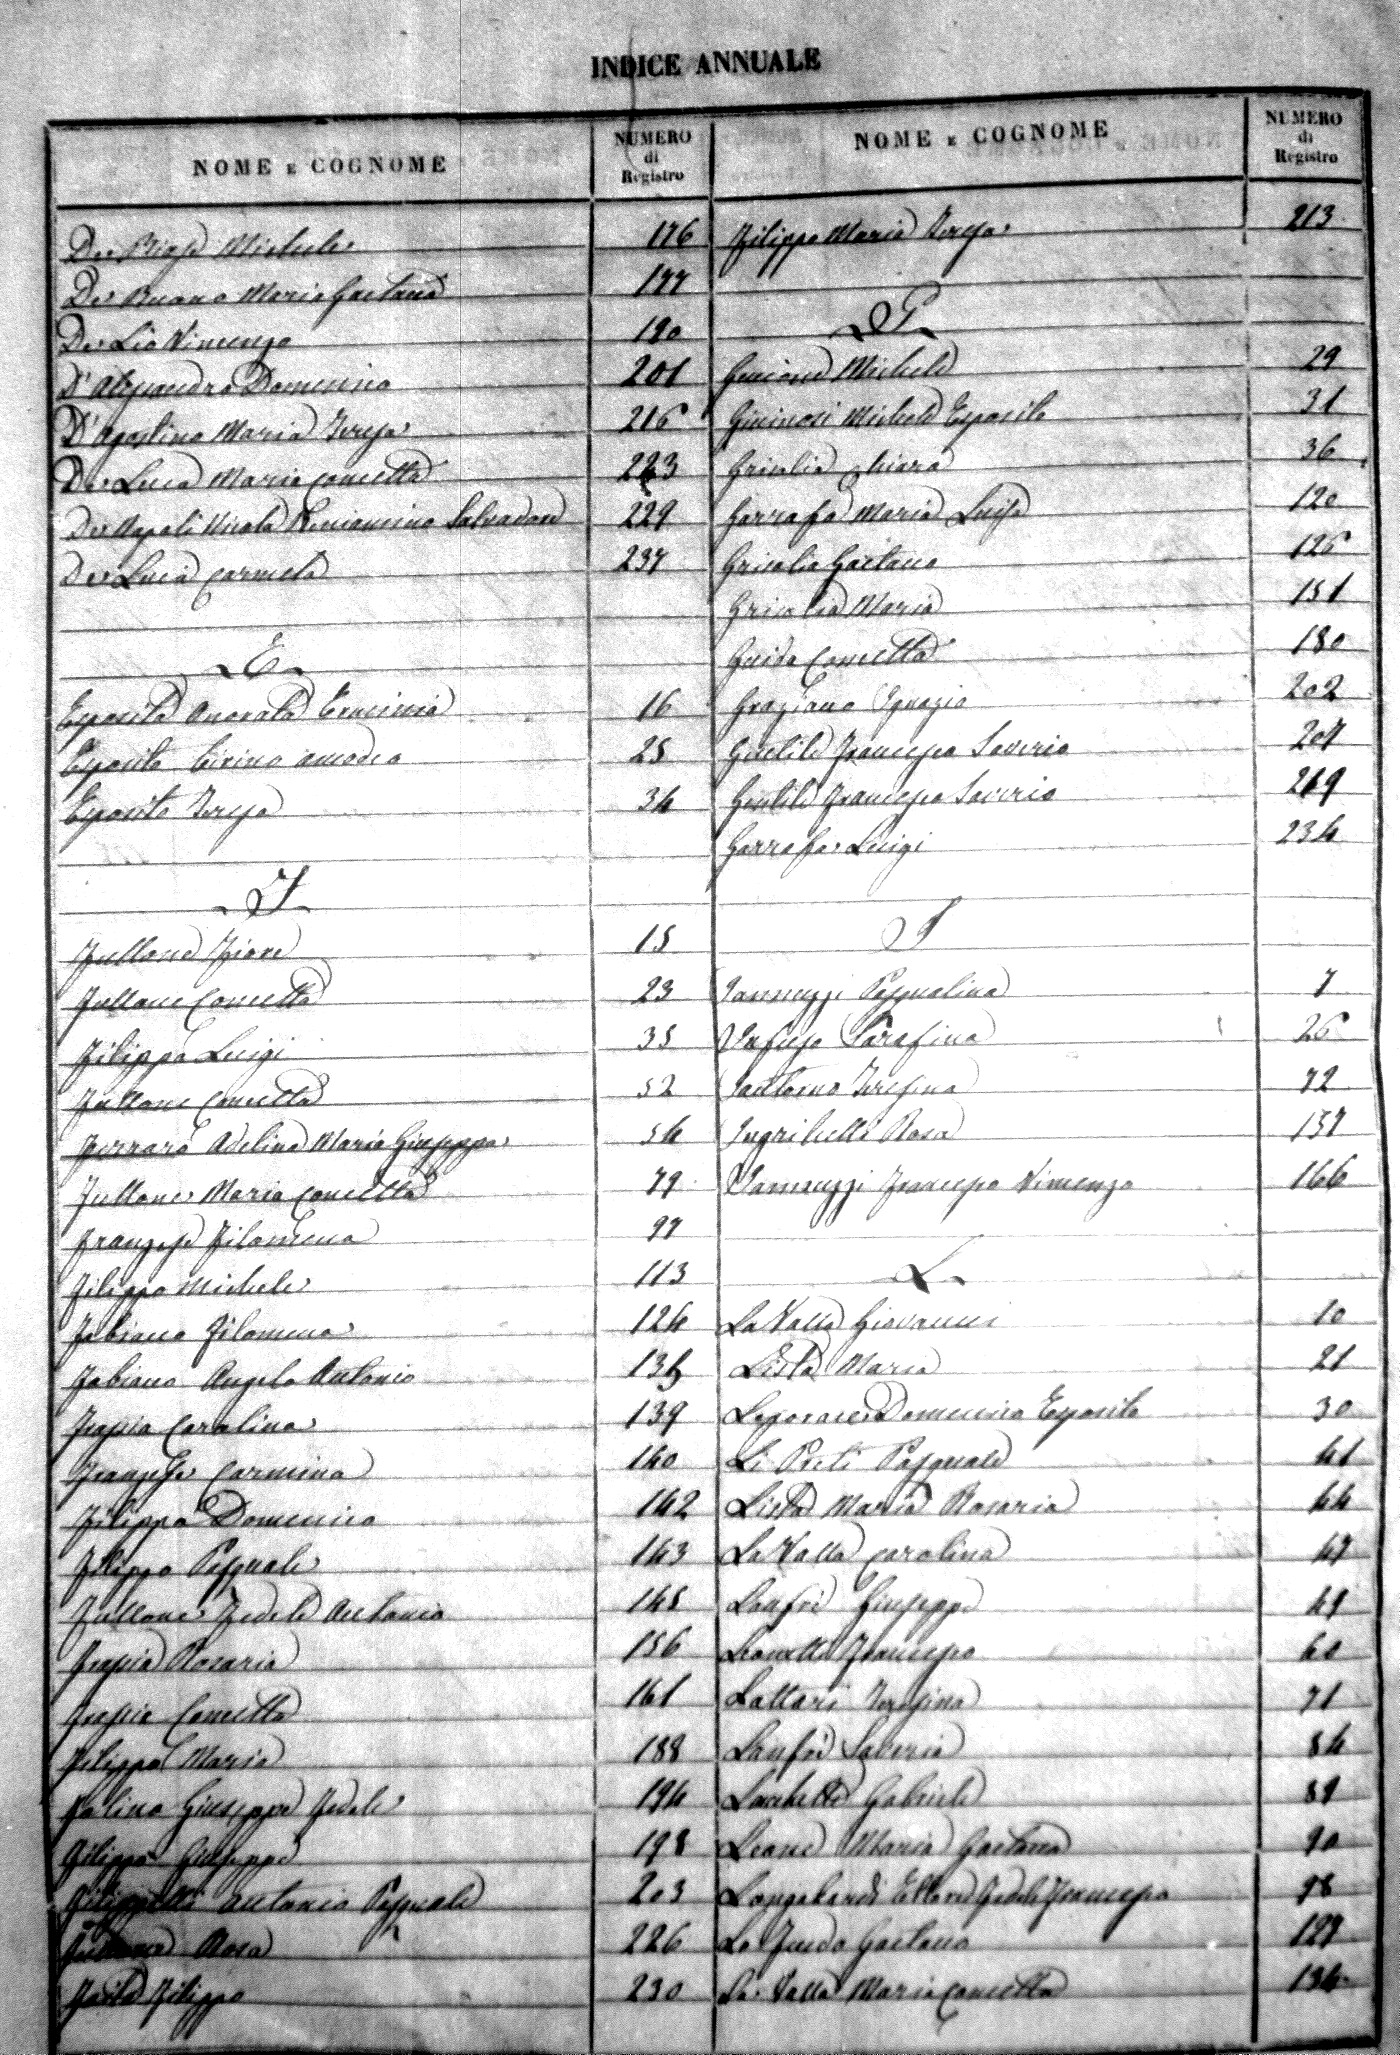 INDICE ANNUALE
NOME E COGNOME
NUMERO
di
Registro
De Biase Michele 176
De Buono Maria Gaetana 177
De Lio Vincenzo 190
D'Alessandro Domenico 201
D'Agostino Maria Teresa 216
De Luca Maria Concetta 223
De Napoli Nicola Beniamino Salvadore 229
De Luca Carmela 237
E
Esposito Onorata 16
Esposito Cirino Amodeo 25
Esposito Teresa 34
F
Fullone Fiore 15
Fullone Concetta 23
Filippo Luigi 35
Fullone Concetta 52
Ferraro Adelina Maria Giuseppa 54
Fullone Maria Concetta 79
Franzese Filomena 97
Filippo Michele 113
Fabiano Filomena 124
Fabiano Angelo Antonio 135
Frassia Carolina 139
Franzese Carmina 140
Filippo Domenico 142
Filippo Pasquale 143
Fullone Fedele Antonio 145
Frassia Rosaria 156
Frassia Concetta 161
Filippo Maria 188
Folino Giuseppe Fedele 194
Filippo Giuseppe 198
Antonio Pasquale 203
Fullone Rosa 226
Filippo 230
NOME E COGNOME
NUMERO
di
Registro
Filippo Maria Teresa 213
G
Michele 29
Michele Esposito 31
Grisolia Chiara 36
Garrafa Maria Luisa 120
Grisolia Gaetano 126
Grisolia Maria 151
Guida Concetta 180
Graziano Ignazio 202
Gentile Francesco Saverio 207
Gentile Francesco Saverio 219
Garrafa Luigi 234
I
Iannuzzi Pasqualina 7
Serafina 26
Iantorno Teresina 72
Rosa 137
Iannuzzi Francesco Vincenzo 166
L
La Valle Giovanni 10
Lista Maria 21
Leporace Domenico Esposito 30
Li Preti Pasquale 41
Lista Maria Rosaria 44
La Valle Carolina 47
Lanfré Giuseppe 49
Leonetti Francesco 60
Lattari Teresina 71
Lanfré Saveria 84
Gabriele 89
Leone Maria Gaetana 90
Longobardi Ettore Fedele Francesco 98
Lo Feudo Gaetano 127
La Valle Maria Concetta 134